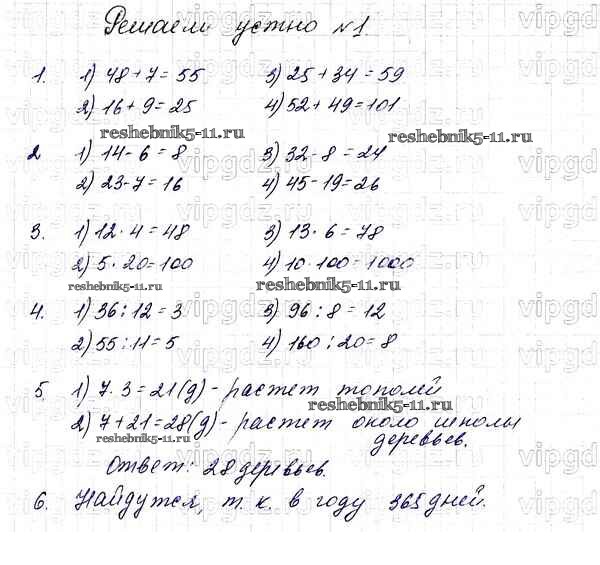 Решаем устно №1
1. 1) 48 + 7 = 55 3) 25 + 34 = 59
2) 16 + 9 = 25 4) 52 + 49 = 101
reshebnik5-11.ru reshebnik5-11.ru
2 1) 14 - 6 = 8 3) 32 - 8 = 24
2) 23 - 7 = 16 4) 45 - 19 = 26
3. 1) 12 · 4 = 48 3) 13 · 6 = 78
2) 5 · 20 = 100 4) 10 · 100 = 1000
reshebnik5-11.ru reshebnik5-11.ru
4. 1) 36 : 12 = 3 3) 96 : 8 = 12
2) 55 : 11 = 5 4) 160 : 20 = 8
5 1) 7 · 3 = 21 (д) - растет тополей
reshebnik5-11.ru
2) 7 + 21 = 28 (д) - растет около школы
reshebnik5-11.ru деревьев.
Ответ: 28 деревьев.
6. Найдутся, т. к. в году 365 дней.